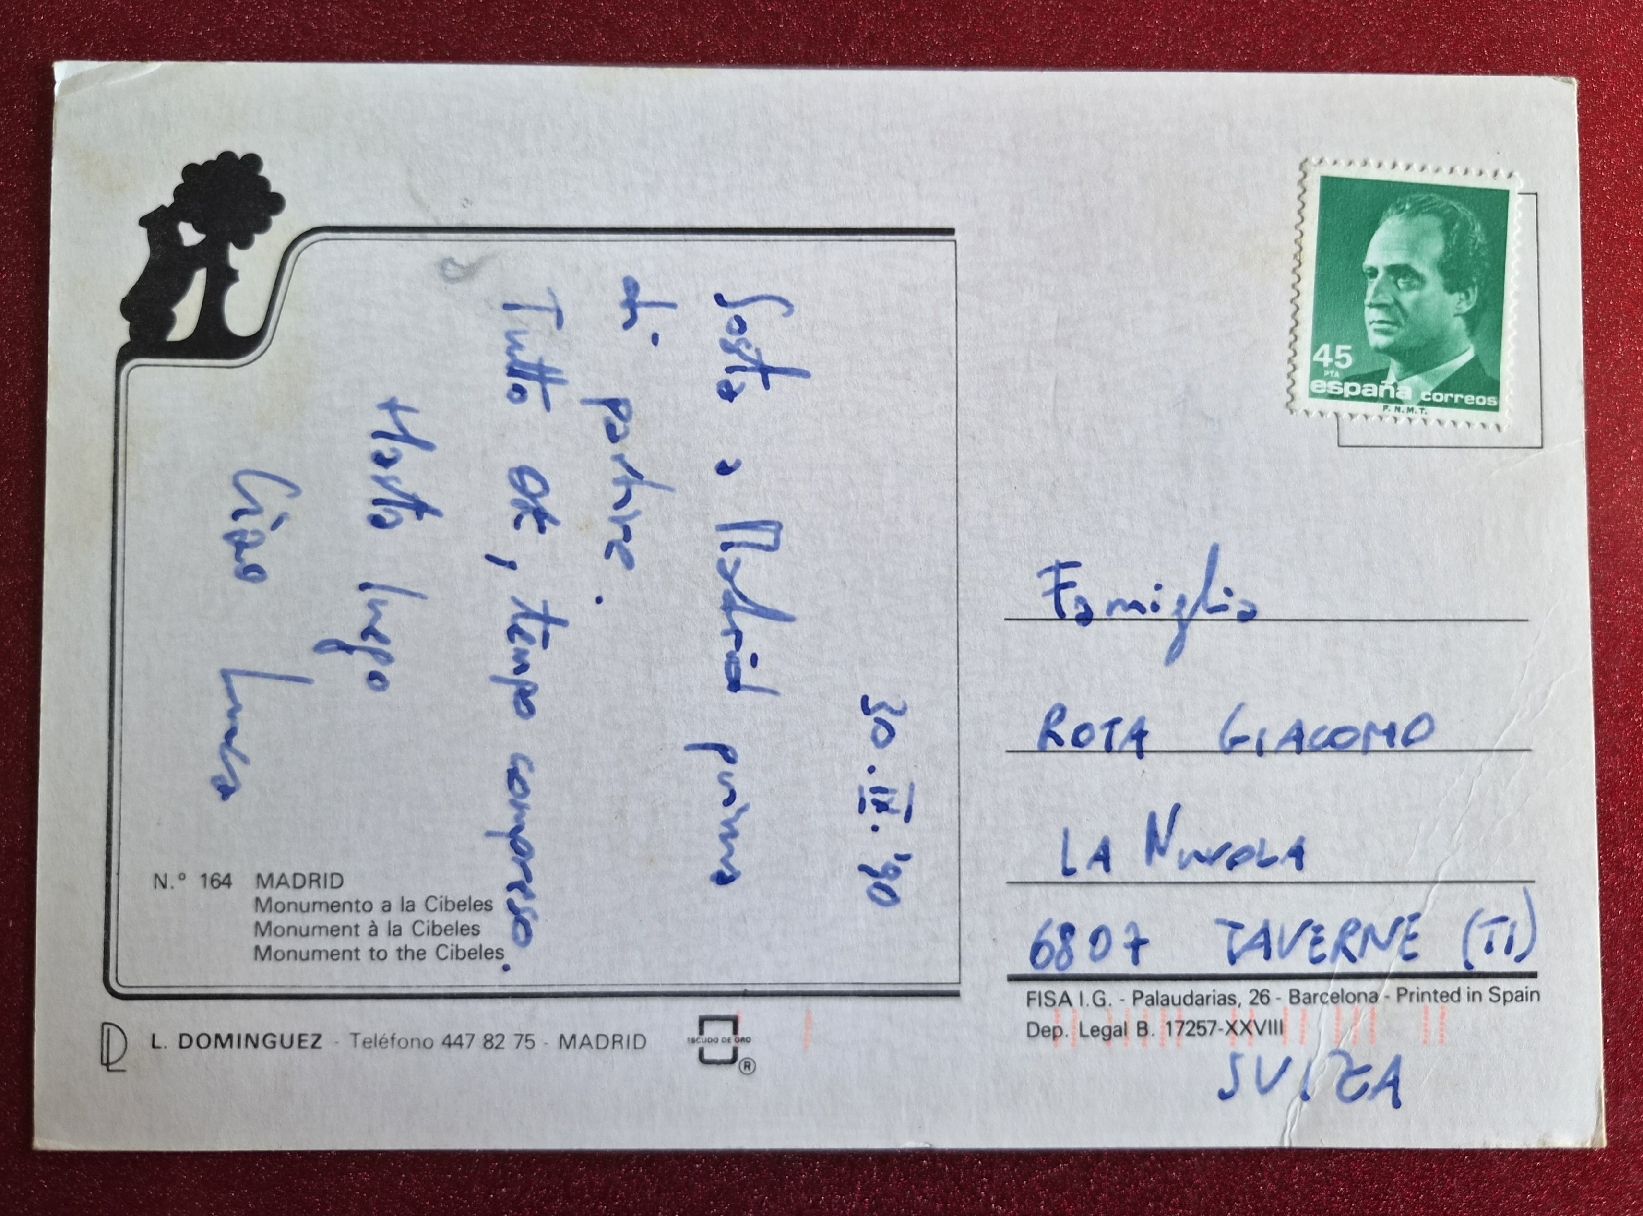 30.IX.'90
Sosta a Madrid prima
di partire.
Tutto OK, tempo compreso.
Hasta luego
Ciao Luca
45
PTA
españa correos
F.N.M.T.
Famiglia
ROTA GIACOMO
LA NUVOLA
6807 TAVERNE (TI)
SVIZZA
N.º 164 MADRID
Monumento a la Cibeles
Monument à la Cibeles
Monument to the Cibeles
FISA I.G. - Palaudarias, 26 - Barcelona - Printed in Spain
Dep. Legal B. 17257-XXVIII
L. DOMINGUEZ - Teléfono 447 82 75 - MADRID
ESCUDO DE ORO
®